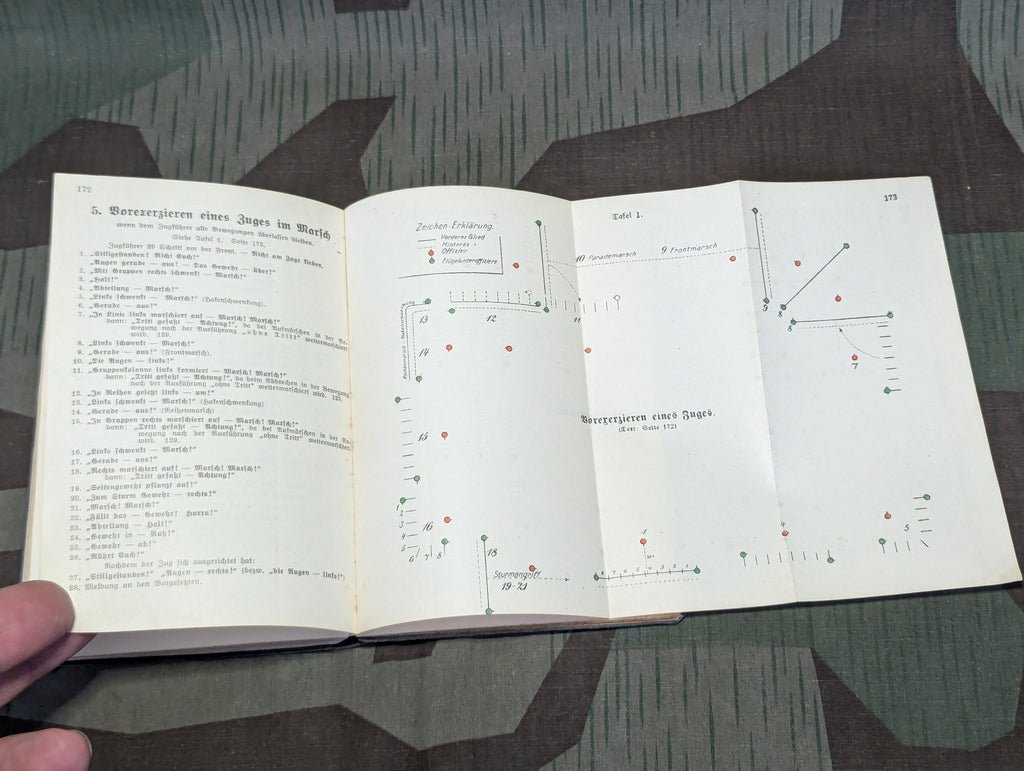 172
5. Vorexerzieren eines Zuges im Marsch
wenn dem Zugführer alle Bewegungen überlassen bleiben.
Siehe Tafel 1. Seite 173.
Zugführer 20 Schritt vor der Front, — Nicht am Zuge kleben.
1. „Stillgestanden! Richt Euch!"
„Augen gerade — aus! — Das Gewehr — über!"
2. „Mit Gruppen rechts schwenkt — Marsch!"
3. „Halt!"
4. „Abteilung — Marsch!"
5. „Links schwenkt — Marsch!" (Hakenschwenkung).
6. „Gerade — aus!"
7. „In Linie links marschiert auf — Marsch! Marsch!"
dann: „Tritt gefaßt — Achtung!", da bei Aufmärschen in der Be-
wegung nach der Ausführung „ohne Tritt" weitermarschiert
wird. 129.
8. „Links schwenkt — Marsch!"
9. „Gerade — aus!" (Frontmarsch).
10. „Die Augen — links!"
11. „Gruppenkolonne links formiert — Marsch! Marsch!"
dann: „Tritt gefaßt — Achtung!", da beim Abbrechen in der Bewegung
nach der Ausführung „ohne Tritt" weitermarschiert wird. 123.
12. „In Reihen gesetzt links — um!"
13. „Links schwenkt — Marsch!" (Hakenschwenkung)
14. „Gerade — aus!" (Reihenmarsch)
15. „In Gruppen rechts marschiert auf — Marsch! Marsch!"
dann: „Tritt gefaßt — Achtung!", da bei Aufmärschen in der Be-
wegung nach der Ausführung „ohne Tritt" weitermarschiert
wird. 129.
16. „Links schwenkt — Marsch!"
17. „Gerade — aus!"
18. „Rechts marschiert auf! — Marsch! Marsch!"
dann: „Tritt gefaßt — Achtung!"
19. „Seitengewehr pflanzt auf!"
20. „Zum Sturm Gewehr — rechts!"
21. „Marsch! Marsch!"
22. „Fällt das — Gewehr! Hurra!"
23. „Abteilung — Halt!"
24. „Gewehr in — Ruh!"
25. „Gewehr — ab!"
26. „Rührt Euch!"
Nachdem der Zug sich ausgerichtet hat:
27. „Stillgestanden!" „Augen — rechts!" (bezw. „die Augen — links!")
28. Meldung an den Vorgesetzten.
173
Tafel 1.
Zeichen-Erklärung.
Vorderes Glied
Hinteres "
Offizier
Flügelunteroffiziere
10 Parademarsch
9 Frontmarsch
9
8
8
7
11
12
13
14
Vorexerzieren eines Zuges.
(Text: Seite 172)
15
16
1
2
3
4
5
6
7
8
18
Sturmangriff
19-21
1
8 7 6 5 4 3 2 1
4
5